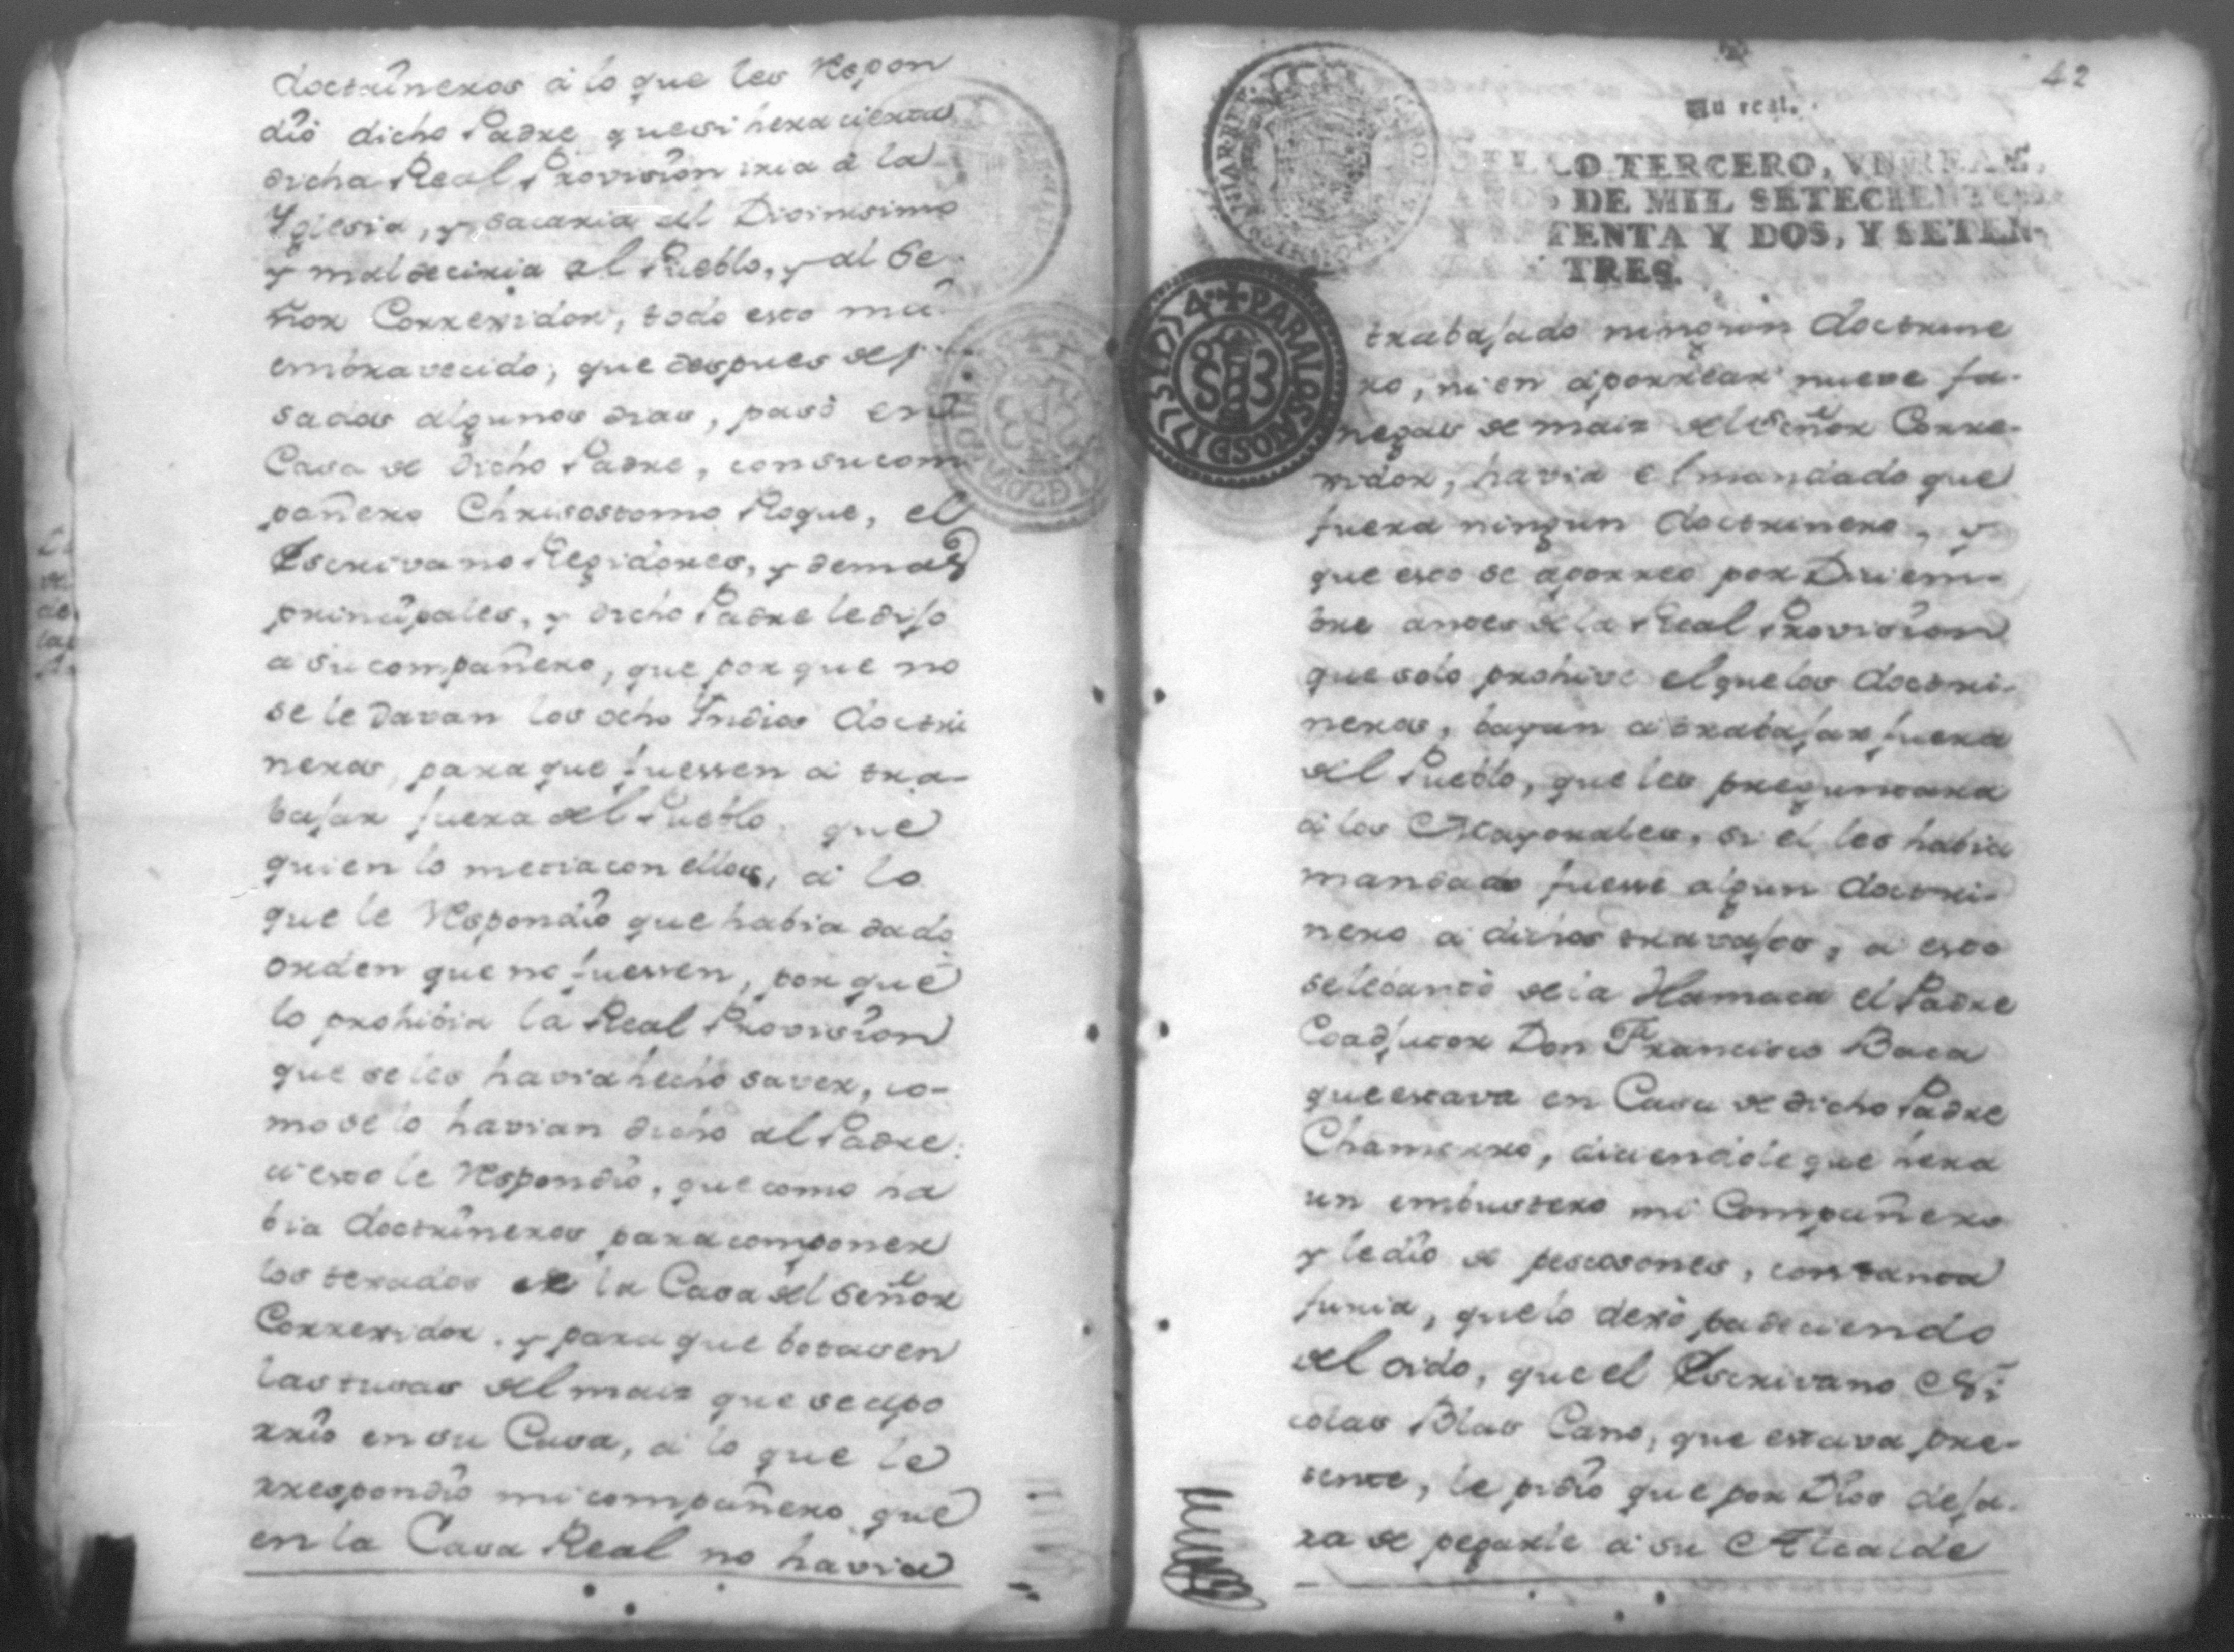 doctrineros á lo que les Respon
dió dicho Padre que si hera cierta
dicha Real Provision iria á la
Yglesia, y sacaria al Divinisimo
y maldeciria al Pueblo, y al Se
ñor Corregidor, todo esto mui
embravecido; que despues de pa
sados algunos dias, pasó en
Casa de dicho Padre, con su com
pañero Chrisostomo Roque, el
Escrivano Regidores, y demas
principales, y dicho Padre le dijo
a su compañero, que por que no
se le davan los ocho Indios doctri
neros, para que fuessen á tra-
bajar fuera del Pueblo, que
quien lo metia con ellos, á lo
que le Respondio que habia dado
orden que no fuessen, por que
lo prohibia la Real Provision
que se les havia hecho saver, co-
mo se lo havian dicho al Padre:
á esto le Respondio, que como ha
bia doctrineros para componer
los texados de la Casa del Señor
Corregidor, y para que botasen
las tusas del maiz que se apo
rrió en su Casa, á lo que le
rrespondio mi compañero que
en la Casa Real no havia
42
Un real.
SELLO TERCERO, VN REAL,
AÑOS DE MIL SETECIENTOS
Y SETENTA Y DOS, Y SETEN-
TRES.
trabajado ningun doctrine
ro, ni en aporrear nueve fa-
negas de maiz del Señor Corre-
gidor, havia el mandado que
fuera ningun doctrinero, y
que esto se aporreo por Diciem-
bre antes de la Real Provision
que solo prohive el que los doctri-
neros, bayan a trabajar fuera
del Pueblo, que les preguntara
á los Mayorales, si el les habia
mandado fuesse algun doctri-
nero a dichos travajos, a esto
se lebantó de la Hamaca el Padre
Coadjutor Don Francisco Baca
que estava en Casa de dicho Padre
Chamorro, diciendole que hera
un embustero mi Compañero
y le dio de pescosones, con tanta
furia, que lo dexó padeciendo
del oido, que el Escrivano Ni
colas Blas Cano, que estava pre-
sente, le pidio que por Dios deja-
ra de pegarle a su Alcalde